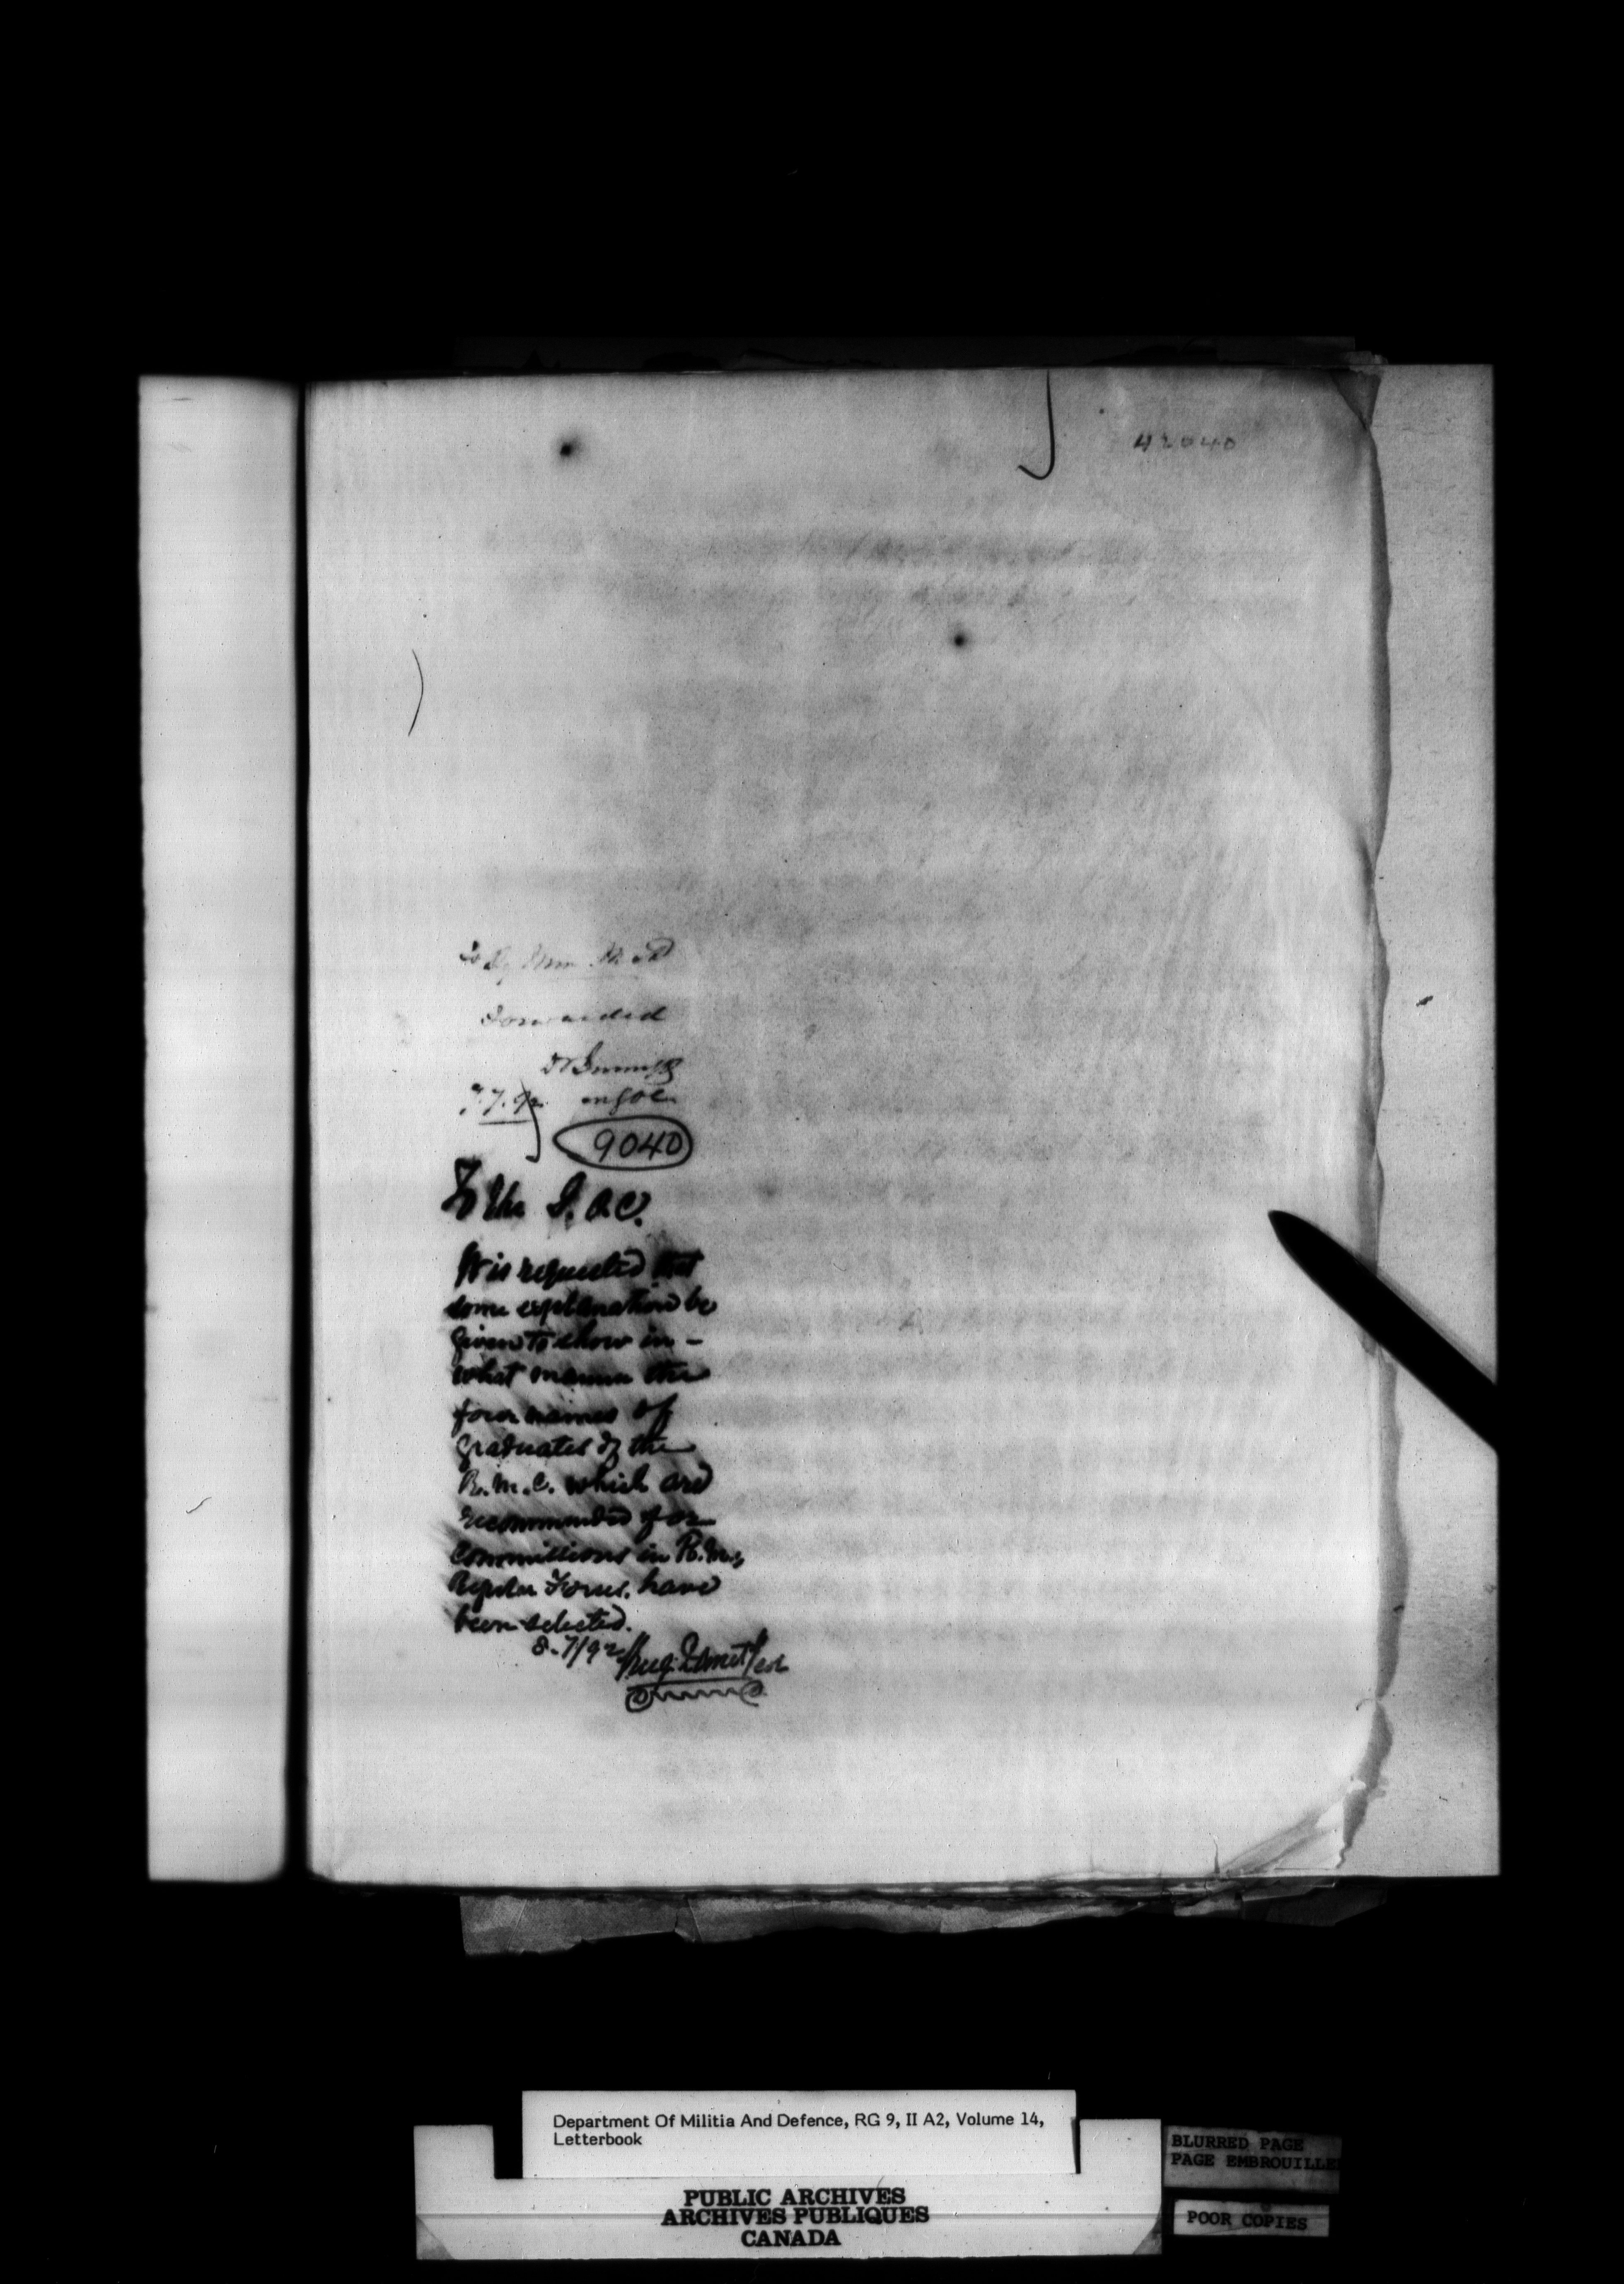 42040
To Dy Min M & D
Forwarded
7.7.92
9040
To the G.O.C.
It is requested that
some explanation be
given to show in -
what manner the
four names of
graduates of the
R.M.C. which are
recommended for
commissions in
Regular Forces, have
been selected.
8-7/92
Department Of Militia And Defence, RG 9, II A2, Volume 14,
Letterbook
BLURRED PAGE
PAGE EMBROUILLE
PUBLIC ARCHIVES
ARCHIVES PUBLIQUES
CANADA
POOR COPIES